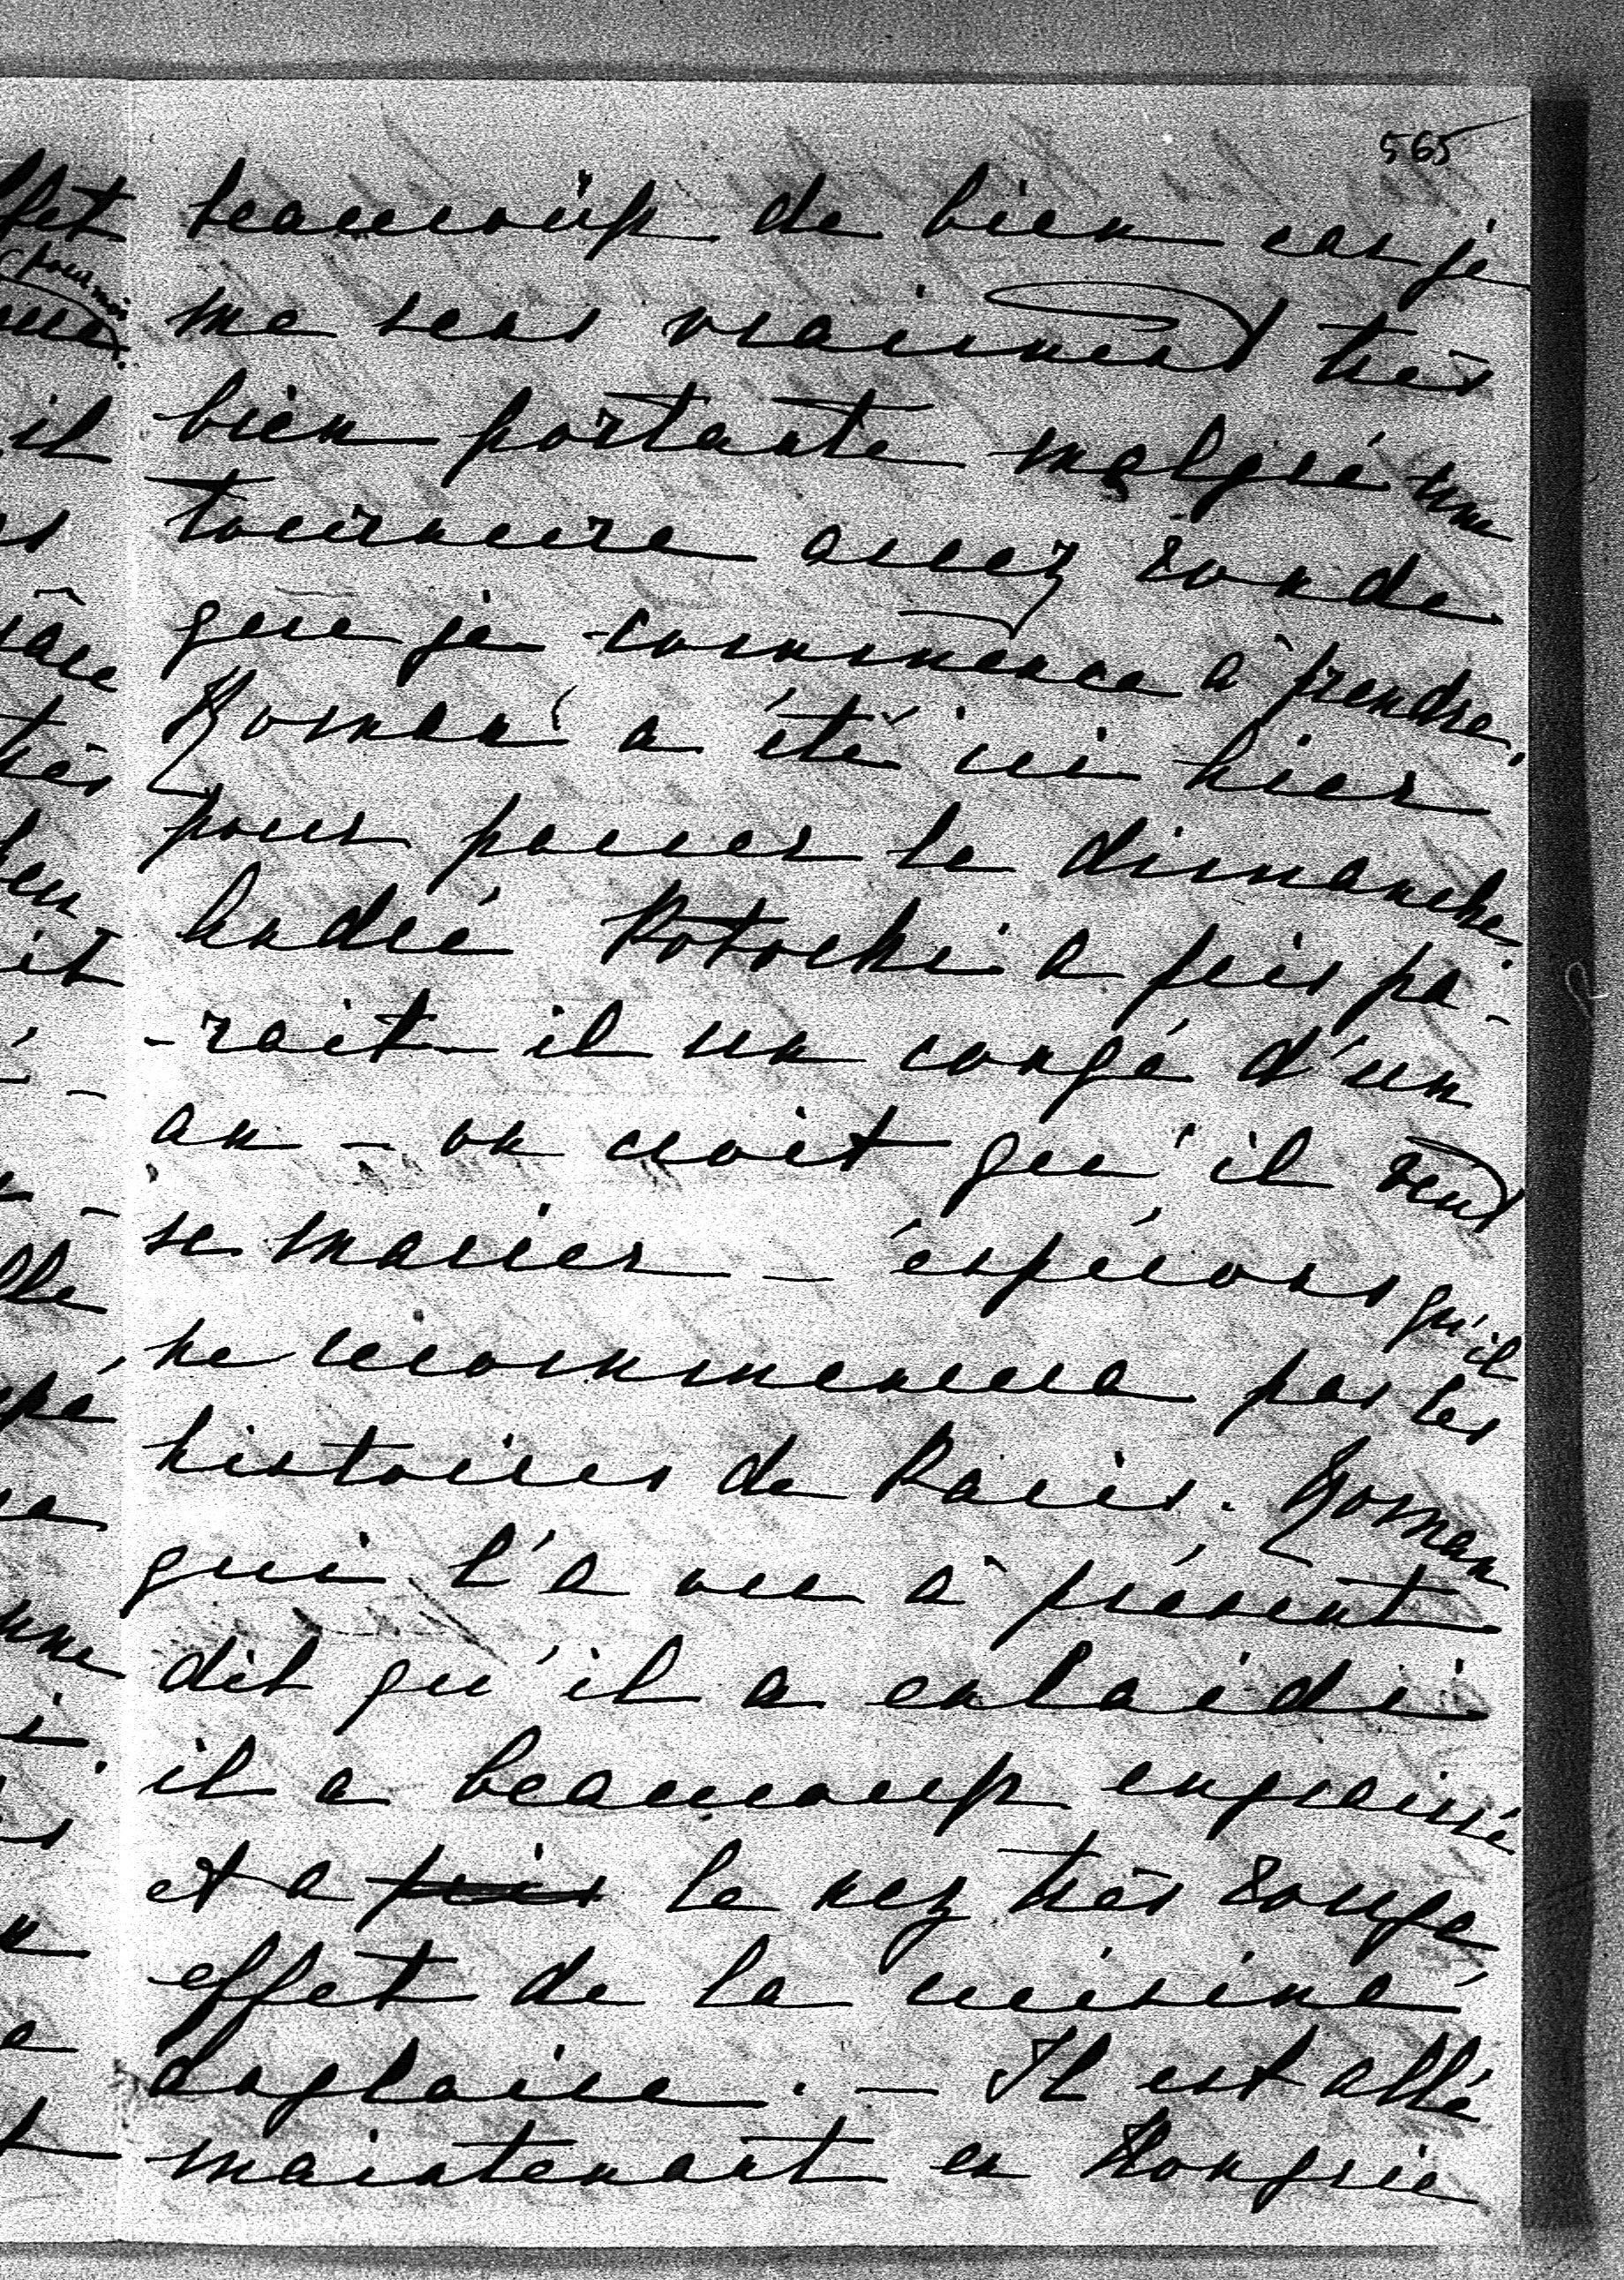 565
beaucoup de bien car je
me sens vraiment très
bien portante malgré une
tournure assez ronde
que je commence à prendre.
Roman a été ici hier
pour passer le dimanche.
André Potocki a pris pa-
-rait-il un congé d'un
an – on croit qu'il veut
se marier – espérons qu'il
ne recommencera pas les
histoires de Paris. Roman
qui l'a vu à présent
dit qu'il a enlaidi
il a beaucoup engraissé
et a pris le nez très rouge
effet de la cuisine
Anglaise. – Il est allé
maintenant en Hongrie